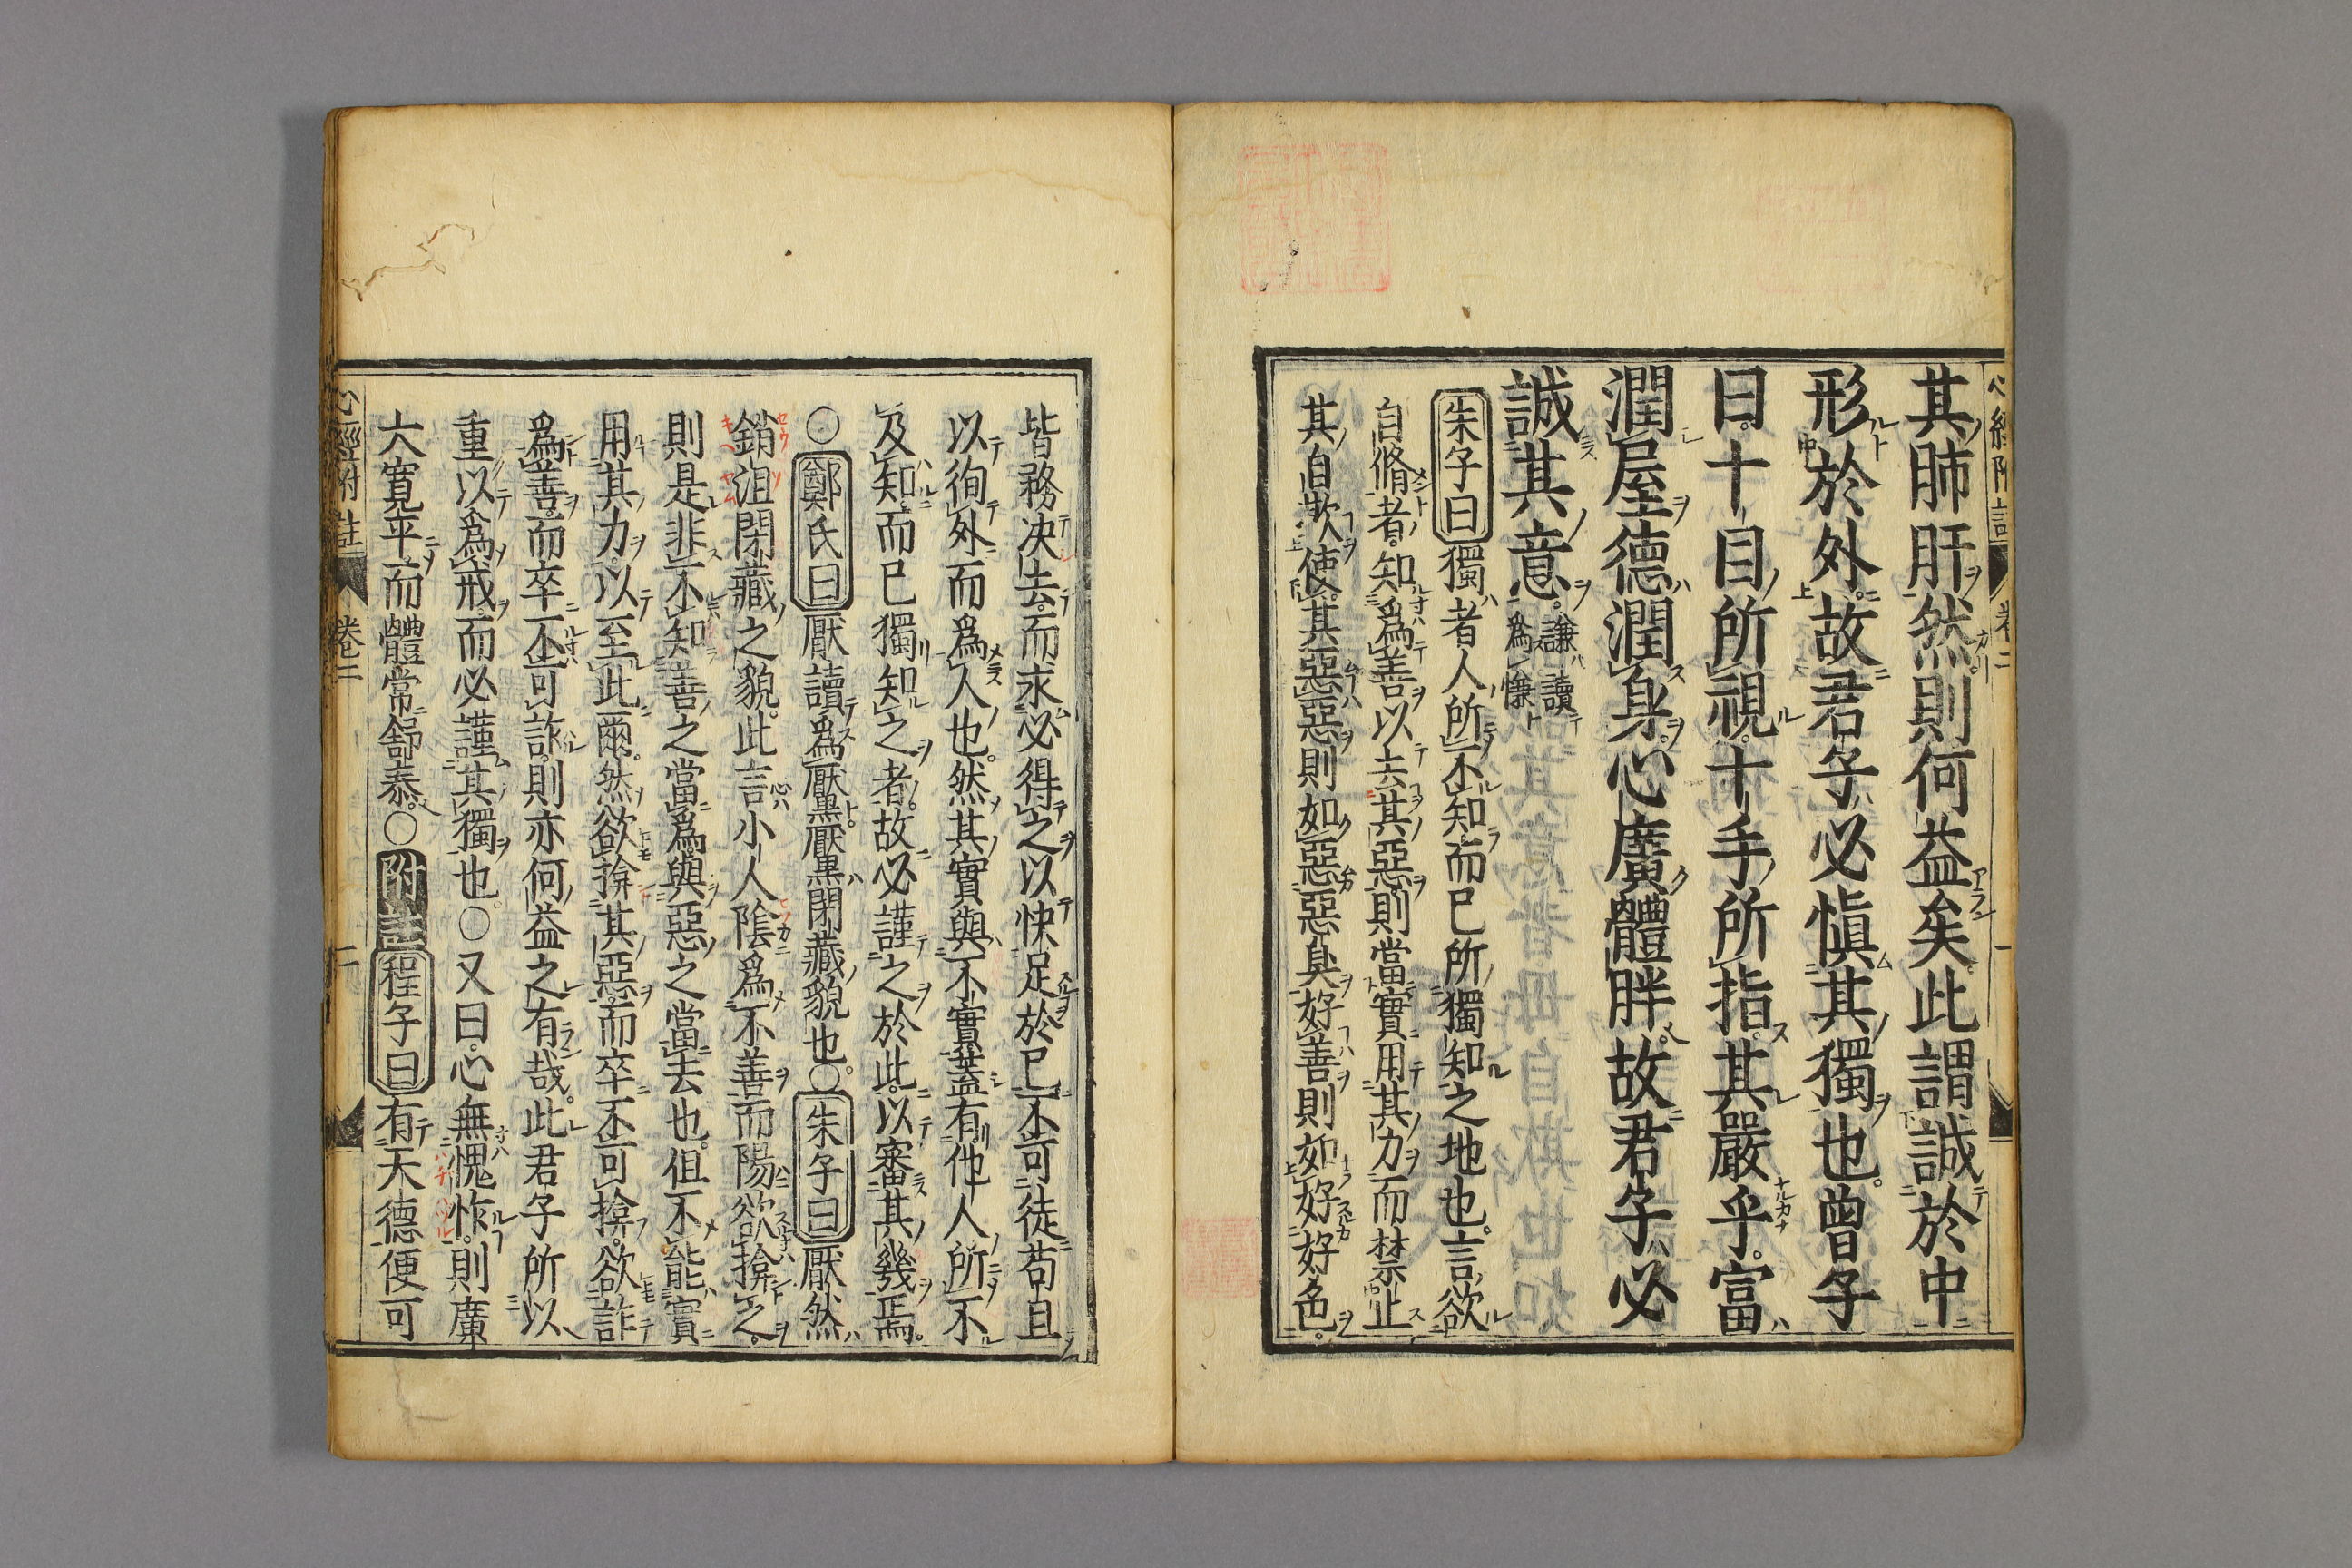 心經附註 卷二 一
其肺肝然則何益矣此謂誠於中
形於外故君子必愼其獨也曾子
曰十目所視十手所指其嚴乎富
潤屋德潤身心廣體胖故君子必
誠其意。謙讀
爲慊
朱子曰獨者人所不知而己所獨知之地也言欲
自脩者知爲善以去其惡則當實用其力而禁止
其自欺使其惡惡則如惡惡臭好善則如好好色
皆務决去而求必得之以快足於己不可徒苟且
以徇外而爲人也然其實與不實蓋有他人所不
及知而已獨知之者故必謹之於此以審其幾焉
○鄭氏曰厭讀爲黶黶閉藏貌也○朱子曰厭然
銷沮閉藏之貌此言小人陰爲不善而陽欲揜之
則是非不知善之當爲與惡之當去也但不能實
用其力以至此爾然欲揜其惡而卒不可揜欲詐
爲善而卒不可詐則亦何益之有哉此君子所以
重以爲戒而必謹其獨也○又曰心無愧怍則廣
大寬平而體常舒泰○附註程子曰有天德便可
心經附註 卷二 二